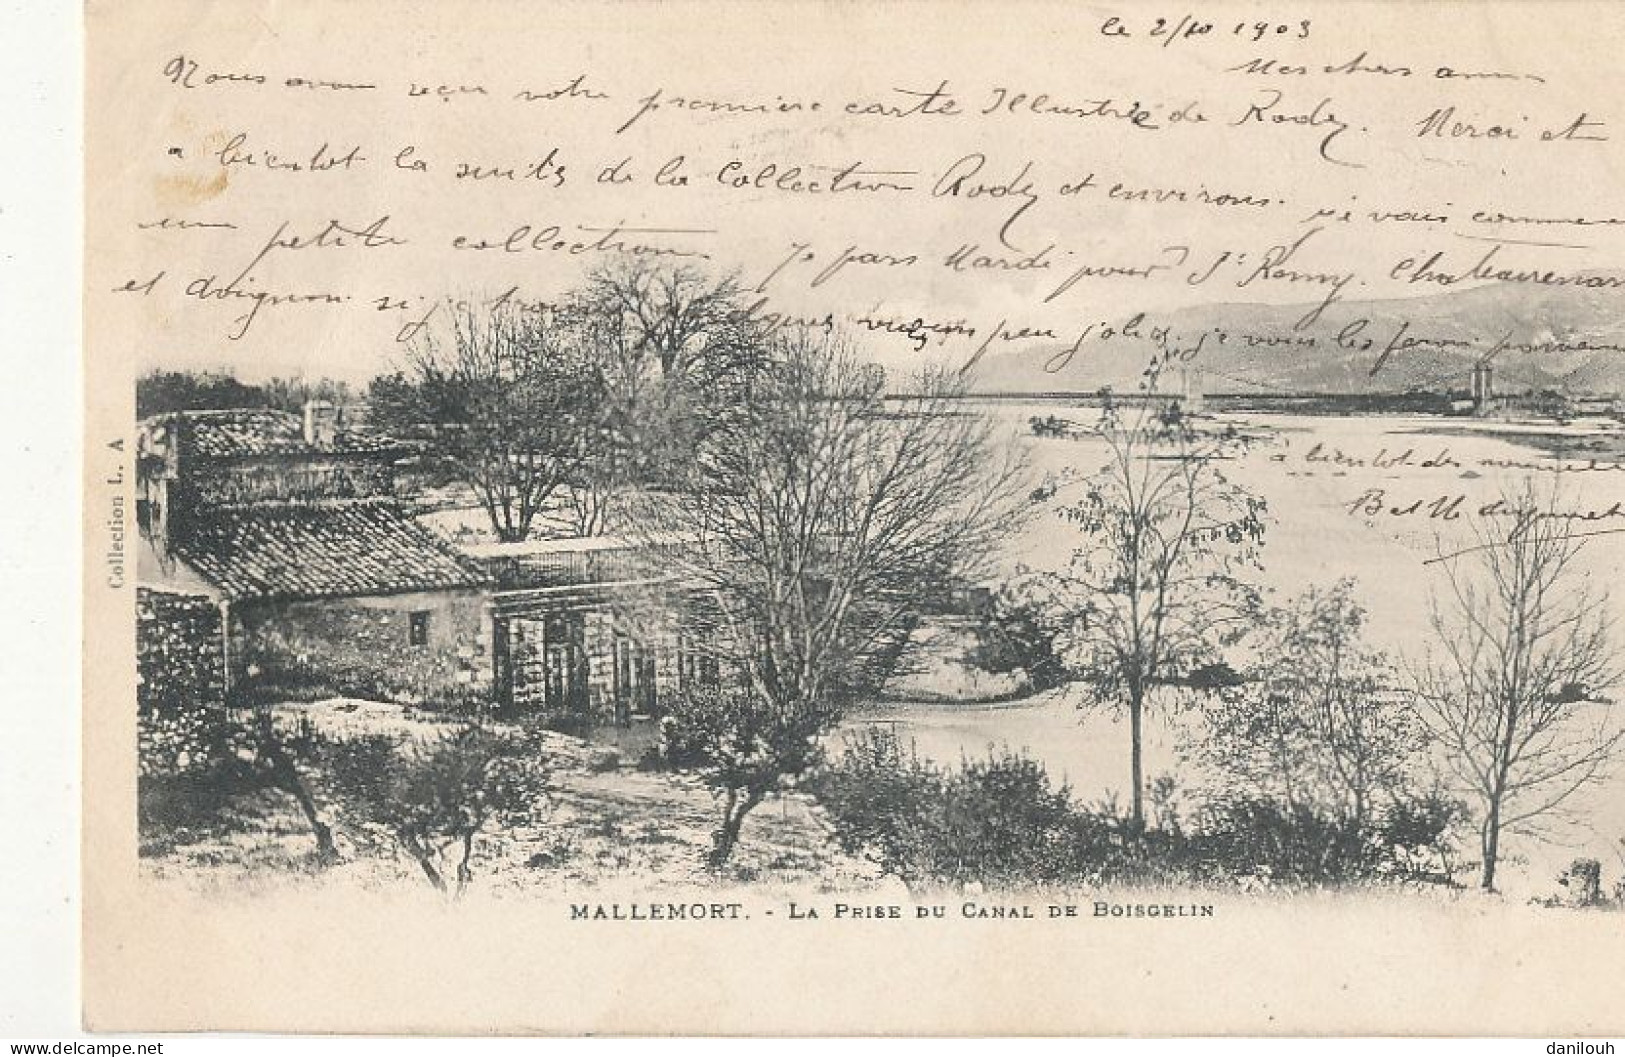 le 2/10 1903
Mes chers amis
Nous avons reçu votre première carte Illustrée de Rodez. Merci et
a bientot la suite de la Collection Rodez et environs. je vais commence
une petite collection. Je pars Mardi pour St Remy. Chateaurenar
et Avignon. si je trouve quelques vues un peu jolies. je vous les ferai parvenir
a bientot des nouvelle
B et M
Collection L. A
MALLEMORT. - LA PRISE DU CANAL DE BOISGELIN
www.delcampe.net
danilouh